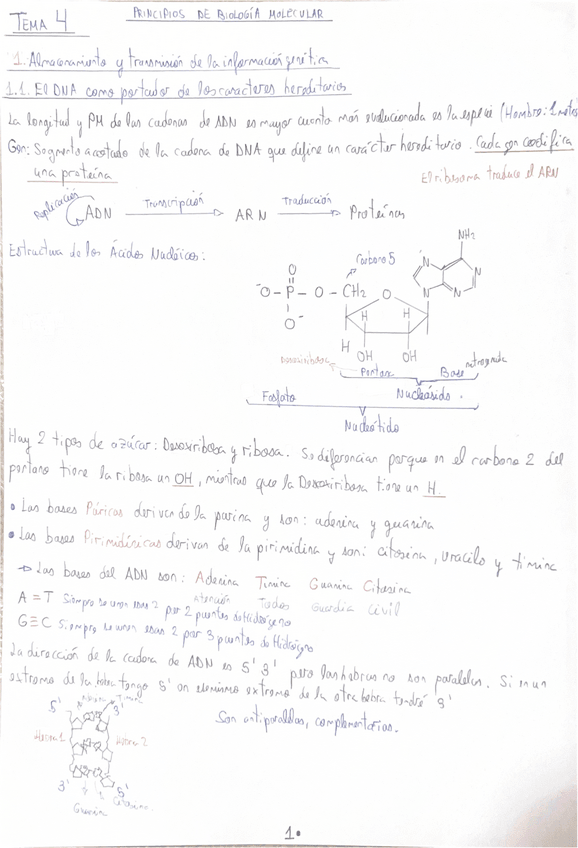 TEMA 4
PRINCIPIOS DE BIOLOGÍA MOLECULAR
1. Almacenamiento y transmisión de la información genética
1.1. El DNA como portador de los caracteres hereditarios
La longitud y PM de las cadenas de ADN es mayor cuanto más evolucionada es la especie (Hombre: 2 metros
Gen: Segmento acotado de la cadena de DNA que define un carácter hereditario. Cada gen codifica
una proteína
El ribosoma traduce el ARN
Replicación ADN Transcripción ARN Traducción Proteínas
Estructura de los Ácidos Nucléicos:
Carbono 5
NH₂
O
⁻O-P-O-CH₂ O N N N N
O⁻
H H
H OH OH
Desoxirribosa Pentosa Base nitrogenada
Fosfato Nucleósido.
Nucleótido
Hay 2 tipos de azúcar: Desoxiribosa y ribosa. Se diferencian porque en el carbono 2 del
pentano tiene la ribosa un OH, mientras que la Desoxiribosa tiene un H.
• Las bases Púricas derivan de la purina y son: adenina y guanina
• Las bases Pirimidínicas derivan de la pirimidina y son: citosina, uracilo y timina
→ Las bases del ADN son: Adenina Timina Guanina Citosina
Atención Todos Guardia Civil
A = T Siempre se unen esas 2 por 2 puentes de Hidrógeno
G≡C Siempre se unen esas 2 por 3 puentes de Hidrógeno
La dirección de la cadena de ADN es 5' 3' pero las hebras no son paralelas. Si en un
extremo de la hebra tengo 5' en el mismo extremo de la otra hebra tendré 3'
Son antiparalelas, complementarias.
Adenina Timina
5' 3'
Hebra 1 Hebra 2
3' 5'
Guanina Citosina
1.